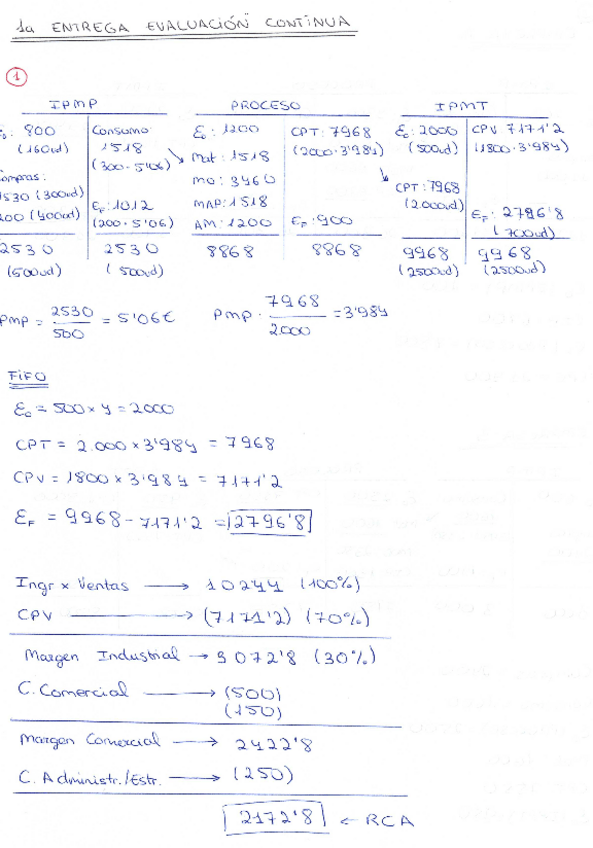 1a ENTREGA EVALUACIÓN CONTINUA
1
IPMP PROCESO IPMT
E₀: 800 Consumo E₀: 1200 CPT: 7968 E₀: 2000 CPV 7171'2
(160ud) 1518 (2000·3'984) (500ud) (1800·3'984)
(300·5'06) Mat: 1518
Compras: MO: 3460 CPT: 7968
1530 (300ud) EF: 1012 MAP: 1518 (2000ud) EF: 2796'8
200 (40ud) (200·5'06) AM: 1200 EF: 900 (700ud)
2530 2530 8868 8868 9968 9968
(500ud) (500ud) (2500ud) (2500ud)
PMP = 2530/500 = 5'06€ PMP · 7968/2000 = 3'984
FIFO
E₀ = 500 x 4 = 2000
CPT = 2.000 x 3'984 = 7968
CPV = 1800 x 3'984 = 7171'2
EF = 9968 - 7171'2 = 2796'8
Ingr x Ventas → 10244 (100%)
CPV → (7171'2) (70%)
Margen Industrial → 3072'8 (30%)
C. Comercial → (500)
(150)
Margen Comercial → 2422'8
C. Administr./Estr. → (250)
2172'8 ← RCA